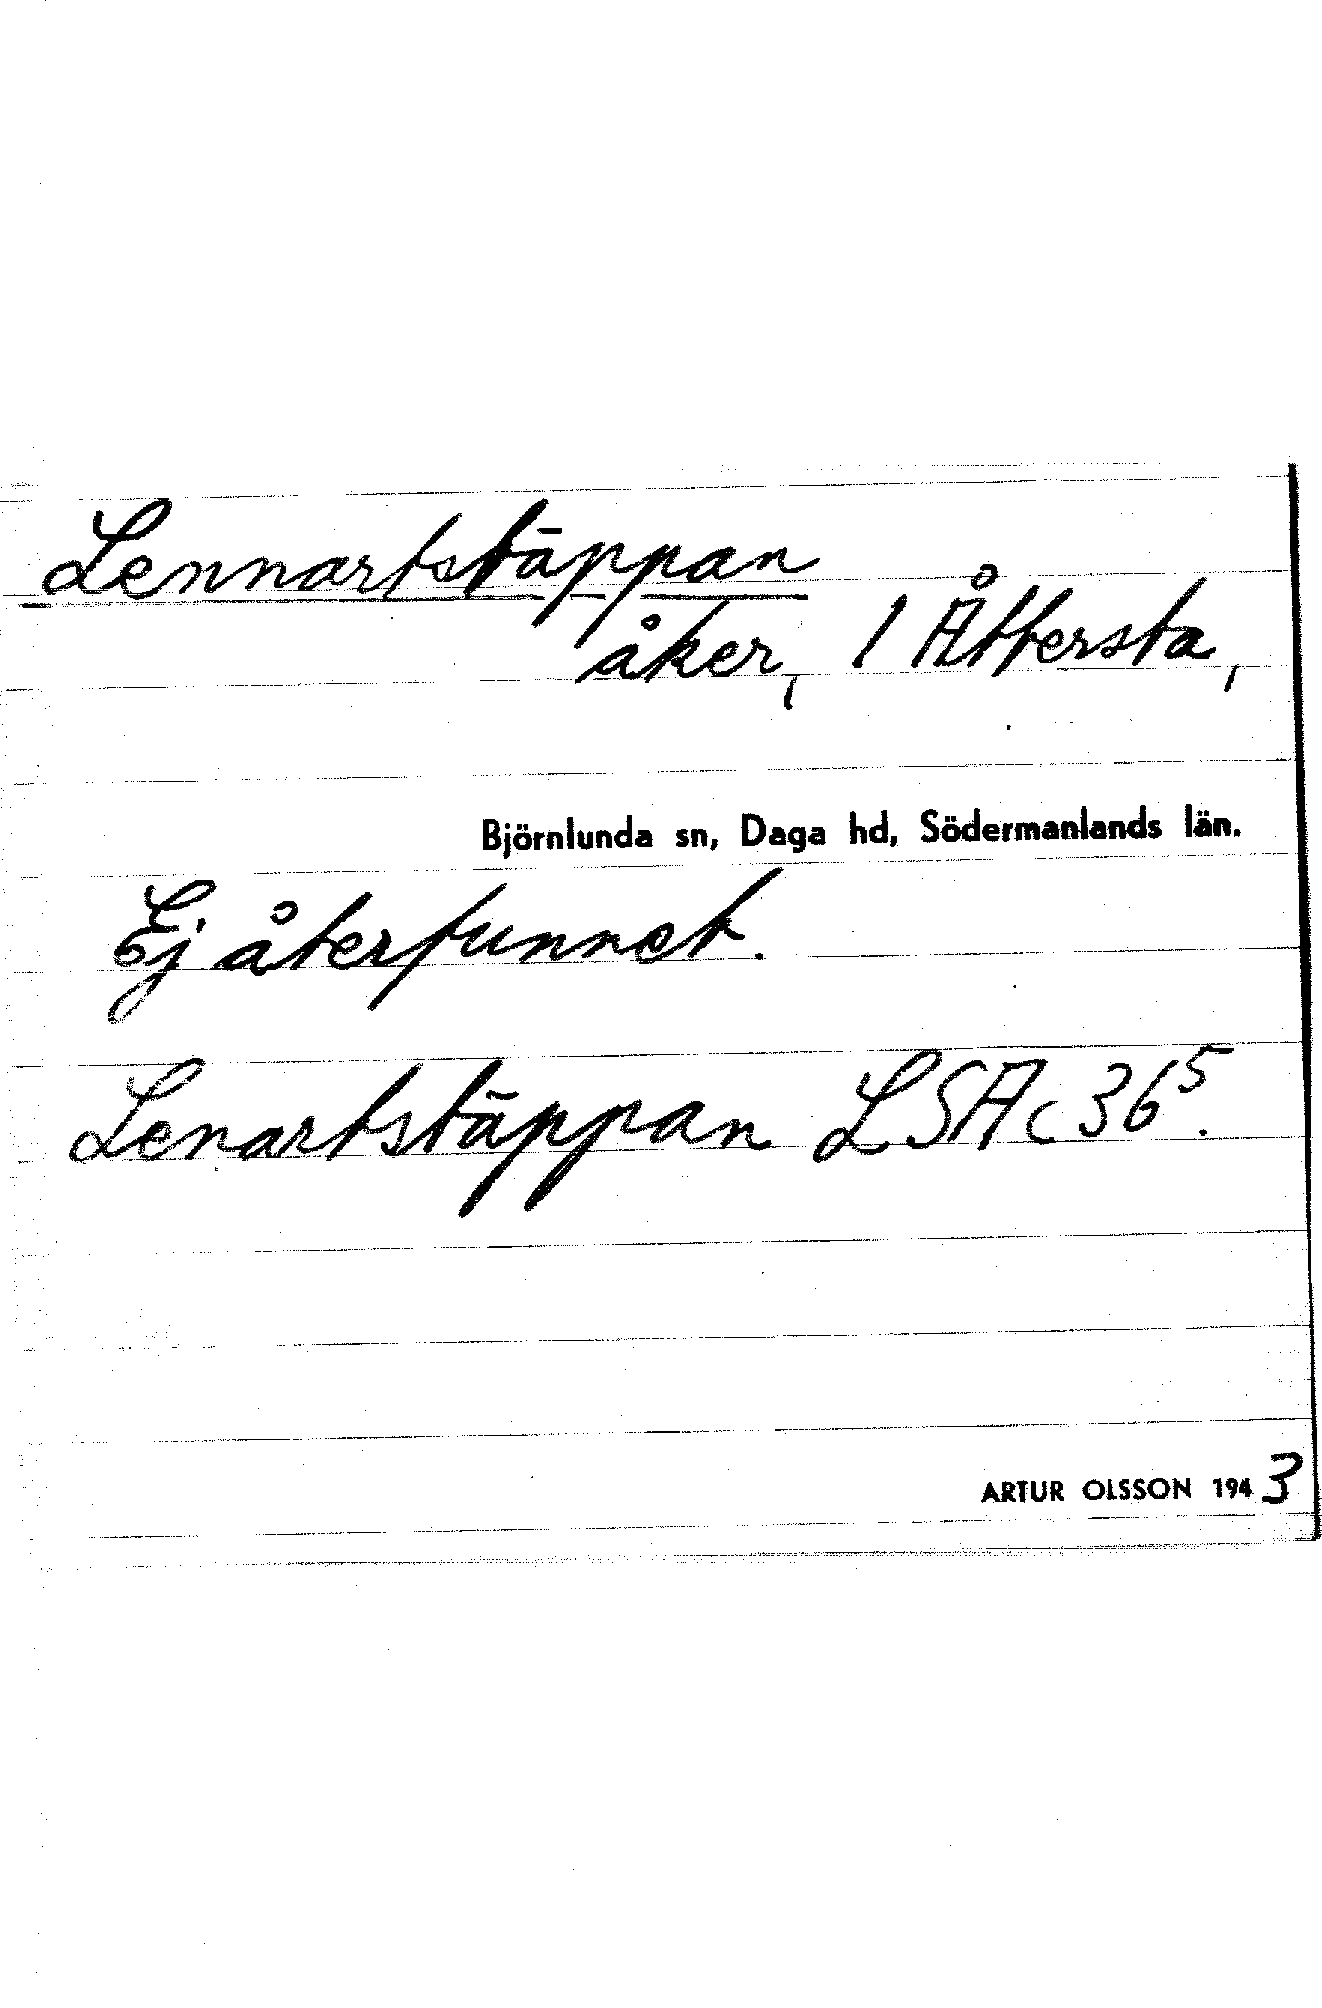 Lennartstäppan
åker, 1 Åttersta,
Björnlunda sn, Daga hd, Södermanlands län.
Ej återfunnet.
Lenartstäppan LSAc 36⁵.
ARTUR OLSSON 1943